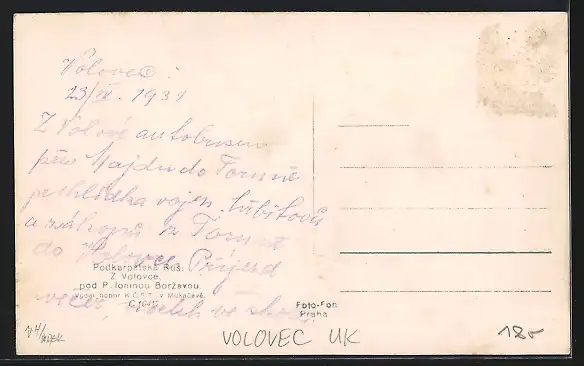 Volovec:
23/IV. 1931
Z Volové autobusem
přes Majdu do Toruně
prohlídka vojen. hřbitovů
a zákopů z Toruně
do Volovce. Příjezd
večer,
Podkarpatská Rus:
Z Volovce,
pod P. loninou Boržavou.
Vydal odbor K.Č.S.T. v Mukačevě.
Foto-Fon
Praha
VOLOVEC UK
18,-